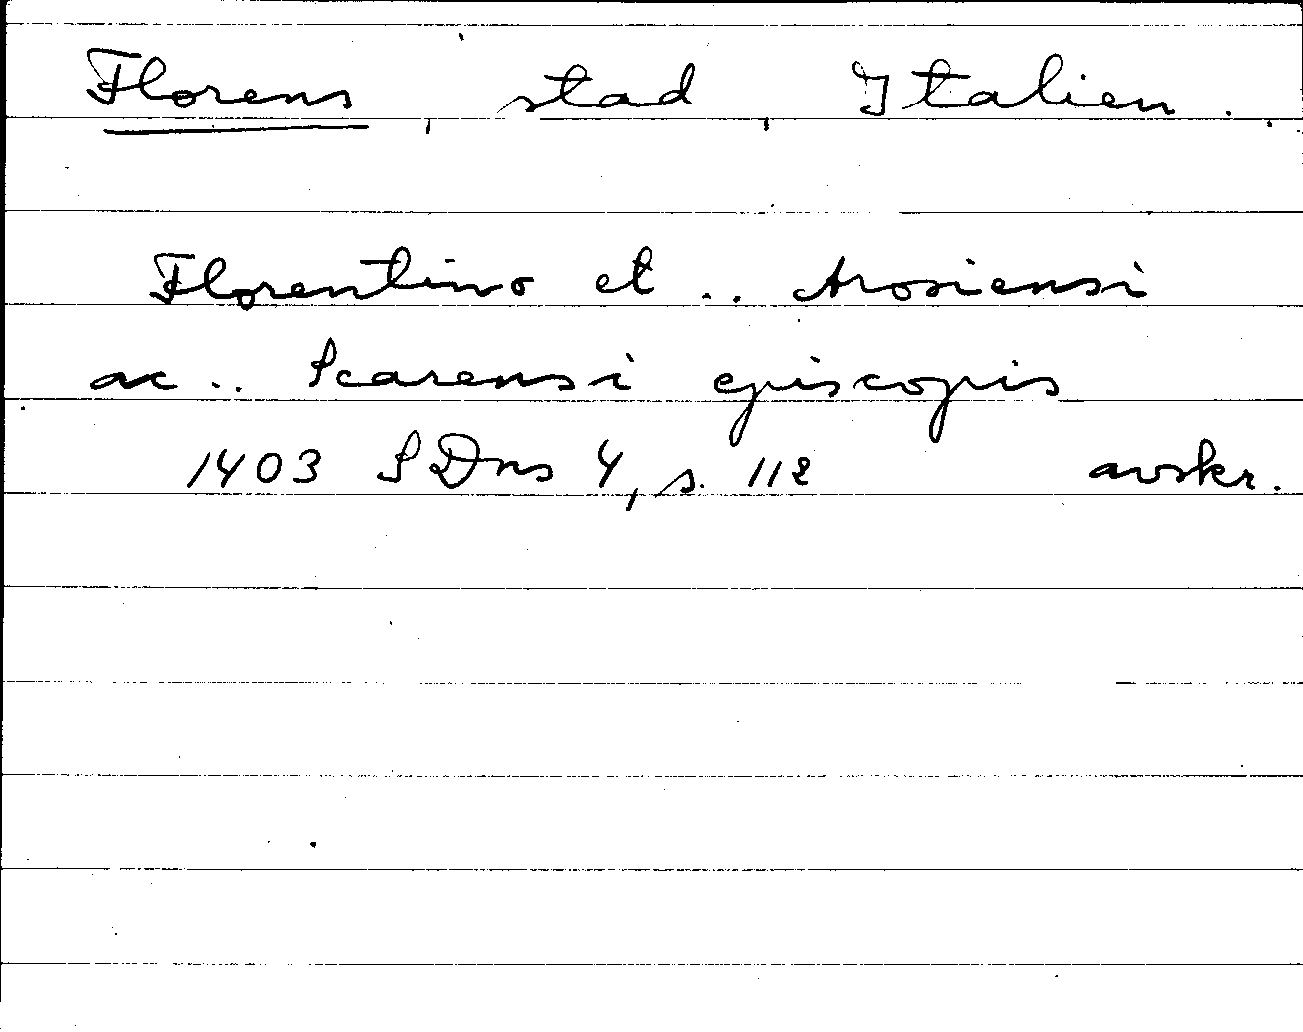 Florens, stad, Italien.
Florentino et .. Arosiensi
ac .. Scarensi episcopis
1403 SDns 4, s. 112 avskr.